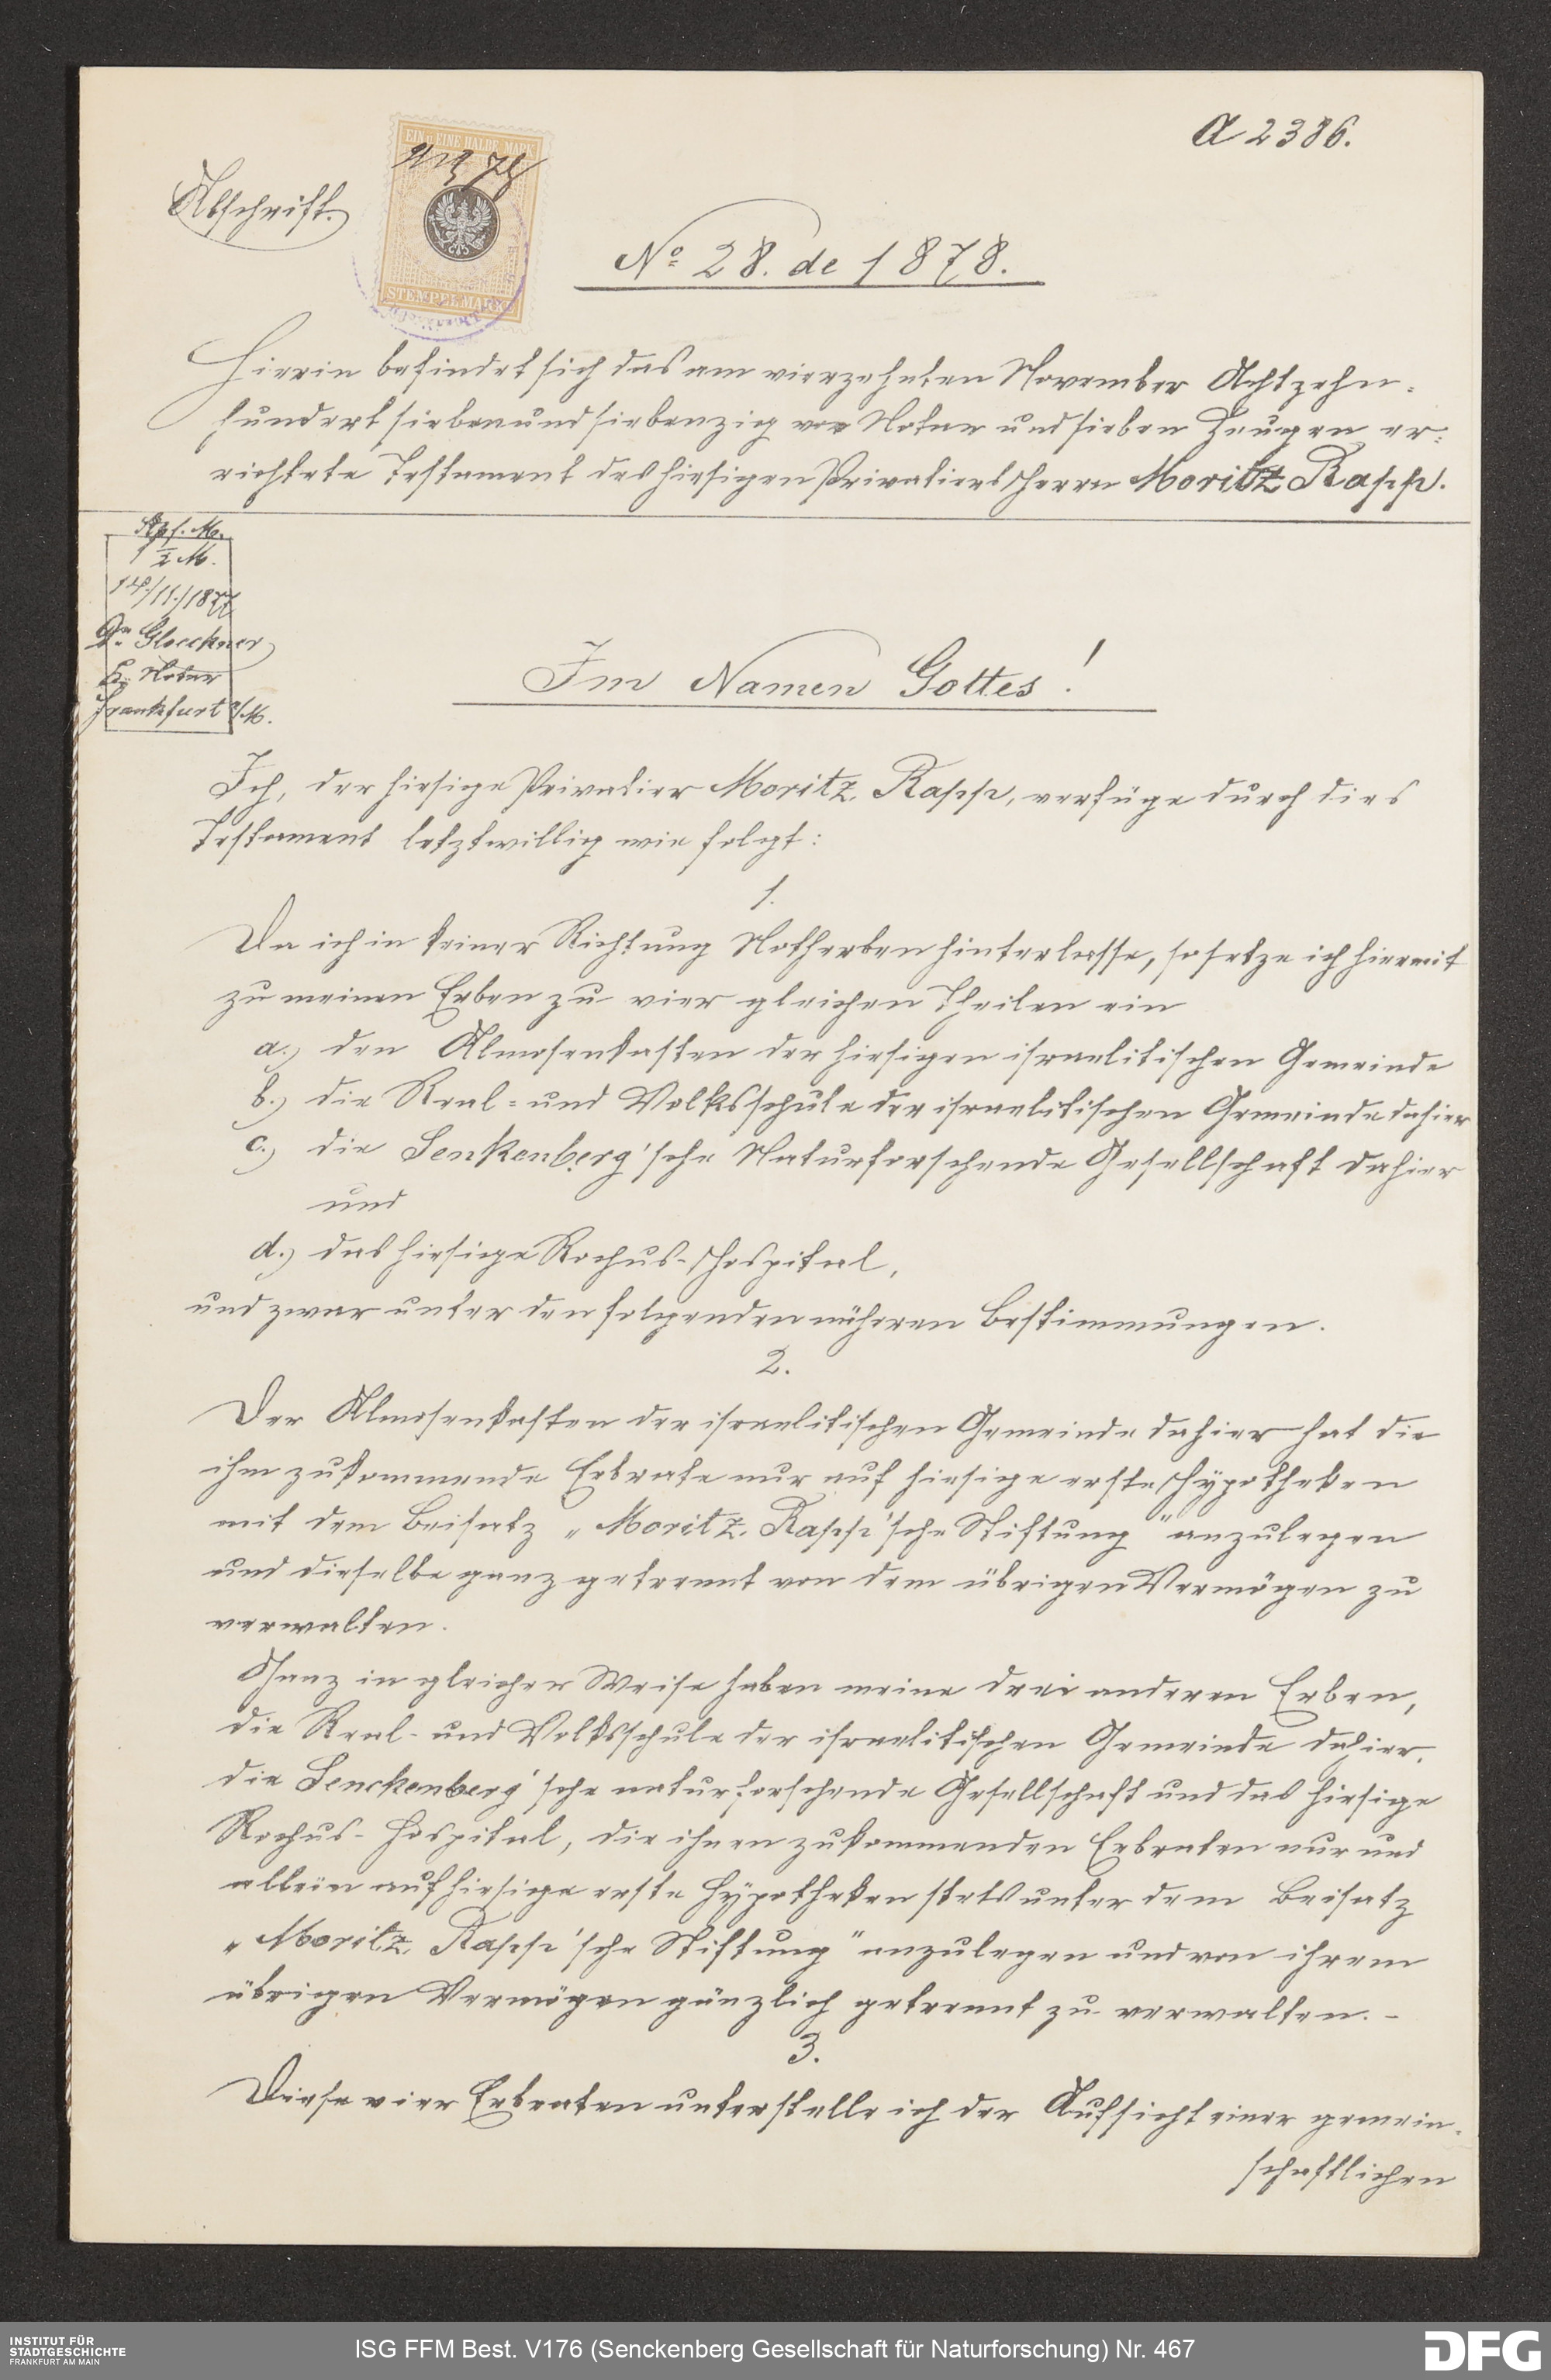 A 2386.
EIN u. EINE HALBE MARK
STEMPELMARKE
Abschrift.
No 28. de 1878.
Hierin befindet sich das am vierzehnten November Achtzehn-
hundert siebenundsiebenzig vor Notar und sieben Zeugen er-
richtete Testament des hiesigen Privatiers Herrn Moritz Rapp.
Kpf. M.
1 1/2 M.
14/11./1877
Dr. Gloeckner
K. Notar
Frankfurt a/M.
Im Namen Gottes!
Ich, der hiesige Privatier Moritz Rapp, verfüge durch dies
Testament letztwillig wie folgt:
1.
Da ich in keiner Richtung Notherben hinterlasse, so setze ich hiermit
zu meinen Erben zu vier gleichen Theilen ein
a.) den Almosenkasten der hiesigen israelitischen Gemeinde
b.) die Real- und Volksschule der israelitischen Gemeinde dahier
c.) die Senkenberg'sche Naturforschende Gesellschaft dahier
und
d.) das hiesige Rochus-Hospital,
und zwar unter den folgenden näheren Bestimmungen.
2.
Der Almosenkasten der israelitischen Gemeinde dahier hat die
ihm zukommende Erbrate nur auf hiesige erste Hypotheken
mit dem Beisatz „Moritz Rapp'sche Stiftung" anzulegen
und dieselbe ganz getrennt von dem übrigen Vermögen zu
verwalten.
Ganz in gleicher Weise haben meine drei anderen Erben,
die Real- und Volksschule der israelitischen Gemeinde dahier,
die Senckenberg'sche naturforschende Gesellschaft und das hiesige
Rochus-Hospital, die ihnen zukommenden Erbraten nur und
allein auf hiesige erste Hypotheken stets unter dem Beisatz
„Moritz Rapp'sche Stiftung" anzulegen und von ihrem
übrigen Vermögen gänzlich getrennt zu verwalten. -
3.
Diese vier Erbraten unterstelle ich der Aufsicht einer gemein-
schaftlichen
INSTITUT FÜR
STADTGESCHICHTE
FRANKFURT AM MAIN
ISG FFM Best. V176 (Senckenberg Gesellschaft für Naturforschung) Nr. 467
DFG